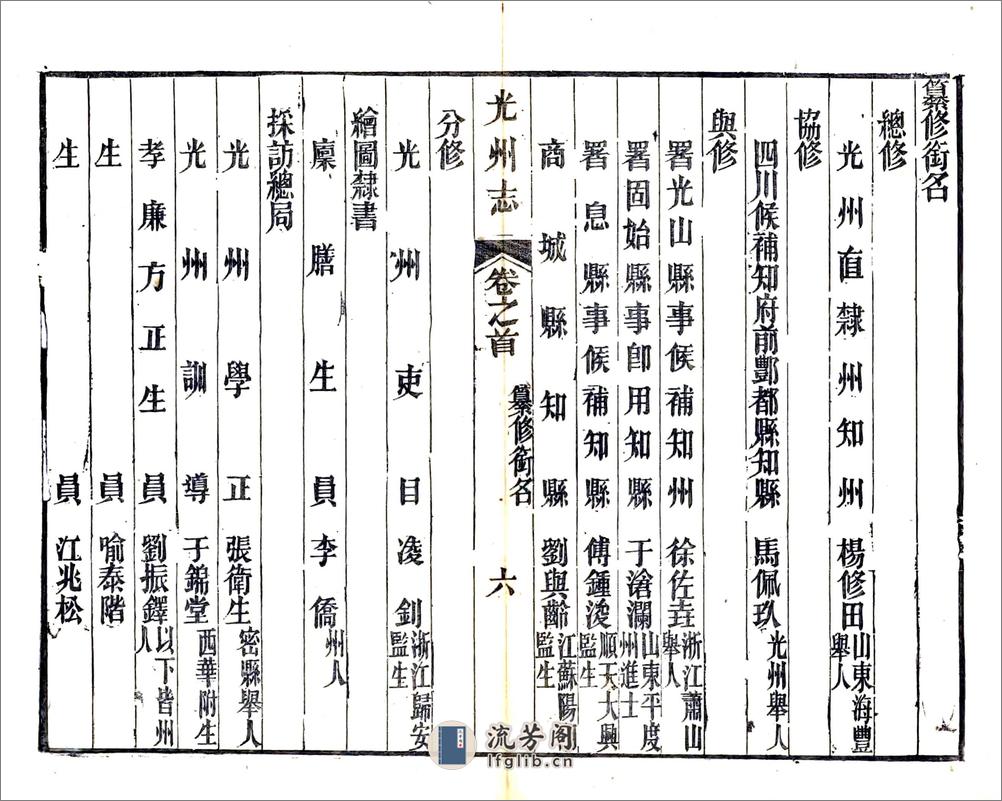 纂修銜名
總修
光州直隸州知州 楊修田 山東海豐舉人
協修
四川候補知府前酆都縣知縣 馬佩玖 光州舉人
與修
署光山縣事候補知州 徐佐垚 浙江蕭山舉人
署固始縣事卽用知縣 于滄瀾 山東平度州進士
署息縣事候補知縣 傅鍾浚 順天大興監生
商城縣知縣 劉與齡 江蘇陽湖監生
光州志 卷之首 纂修銜名 六
分修
光州吏目 凌釗 浙江歸安監生
繪圖隸書
廩膳生員 李僑 州人
採訪總局
光州學正 張衛生 密縣舉人
光州訓導 于錦堂 西華附生
孝廉方正生員 劉振鐸 以下皆州人
生員 喻泰階
生員 江兆松
流芳阁
lfglib.cn